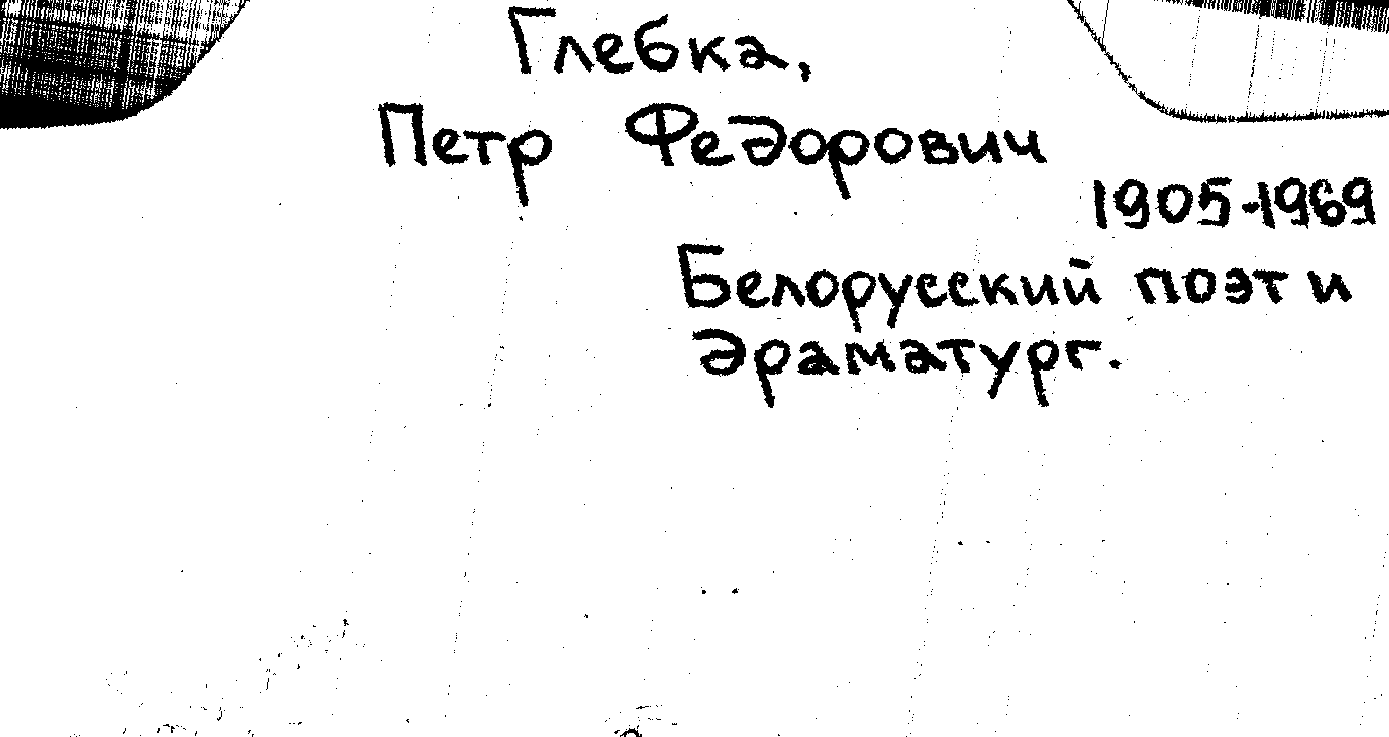 Глебка,
Петр Федорович
1905-1969
Белорусский поэт и
драматург.